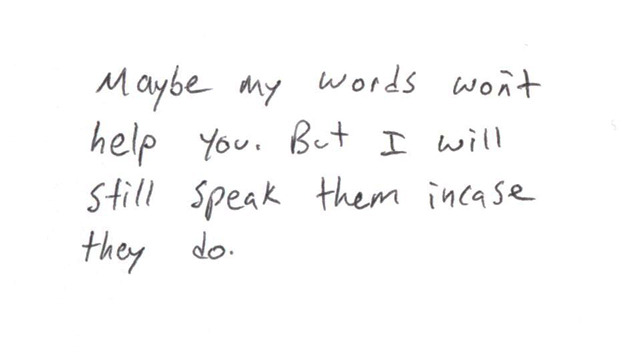 Maybe my words won't
help you. But I will
still speak them incase
they do.